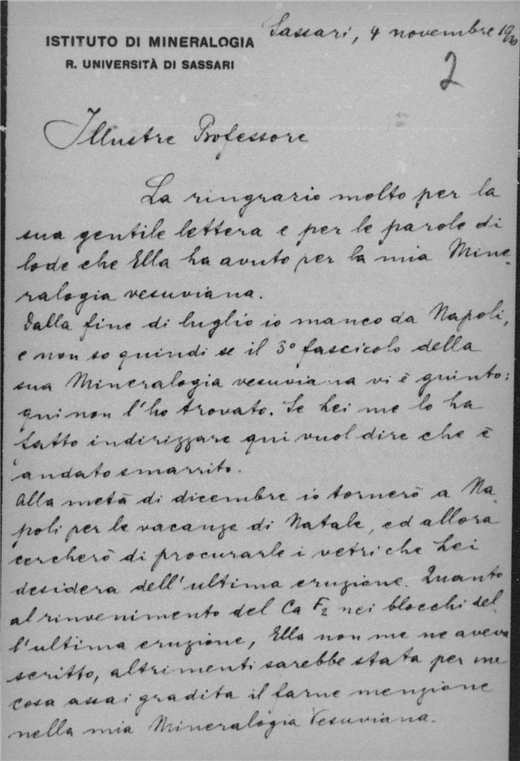 Sassari, 4 novembre 19
ISTITUTO DI MINERALOGIA
R. UNIVERSITÀ DI SASSARI
2
Illustre Professore
La ringrazio molto per la
sua gentile lettera e per le parole di
lode che Ella ha avuto per la mia Mine-
ralogia vesuviana.
Dalla fine di luglio io manco da Napoli,
e non so quindi se il 3º fascicolo della
sua Mineralogia vesuviana vi è giunto:
qui non l'ho trovato. Se Lei me lo ha
fatto indirizzare qui vuol dire che è
andato smarrito.
Alla metà di dicembre io tornerò a Na
poli per le vacanze di Natale, ed allora
cercherò di procurarle i vetri che Lei
desidera dell'ultima eruzione. Quanto
al rinvenimento del CaF2 nei blocchi del
l'ultima eruzione, Ella non me ne aveva
scritto, altrimenti sarebbe stata per me
cosa assai gradita il farne menzione
nella mia Mineralogia Vesuviana.